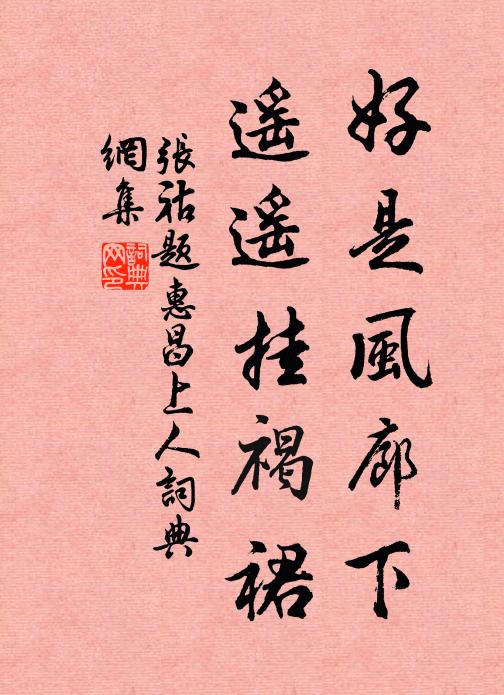 好是風廊下
遥遥挂褐裙
張祜題惠昌上人詞典
網集
詞典網印